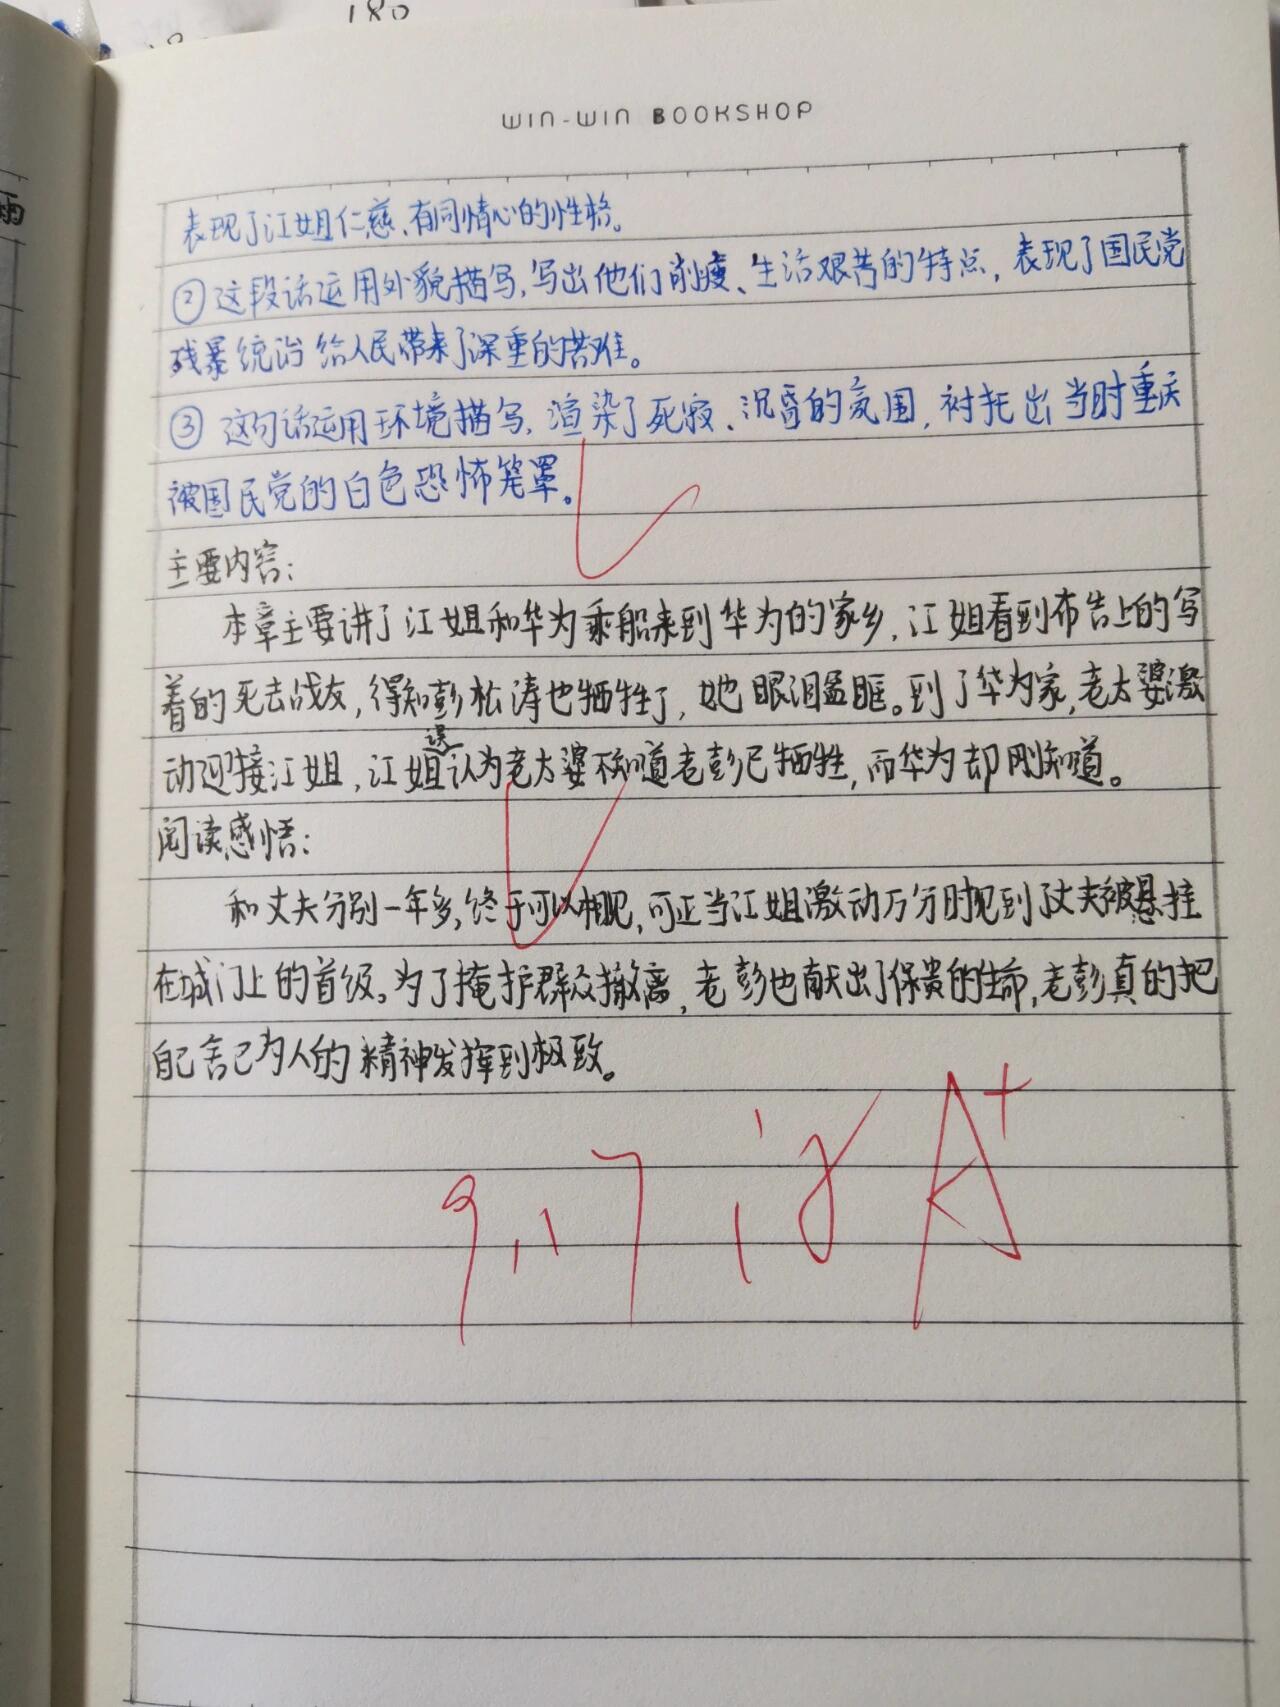 180
雨
WIN-WIN BOOKSHOP
表现了江姐仁慈、有同情心的性格。
②这段话运用外貌描写,写出他们削瘦、生活艰苦的特点,表现了国民党
残暴统治给人民带来了深重的苦难。
③这句话运用环境描写,渲染了死寂、沉昏的氛围,衬托出当时重庆
被国民党的白色恐怖笼罩。
主要内容:
本章主要讲了江姐和华为乘船来到华为的家乡,江姐看到布告上的写
着的死去战友,得知彭松涛也牺牲了,她眼泪盈眶。到了华为家,老太婆激
动迎接江姐,江姐误认为老太婆不知道老彭已牺牲,而华为却刚知道。
阅读感悟:
和丈夫分别一年多,终于可以相见,可正当江姐激动万分时见到了丈夫被悬挂
在城门上的首级。为了掩护群众撤离,老彭也献出了保贵的生命,老彭真的把
自己舍己为人的精神发挥到极致。
9.17 A+